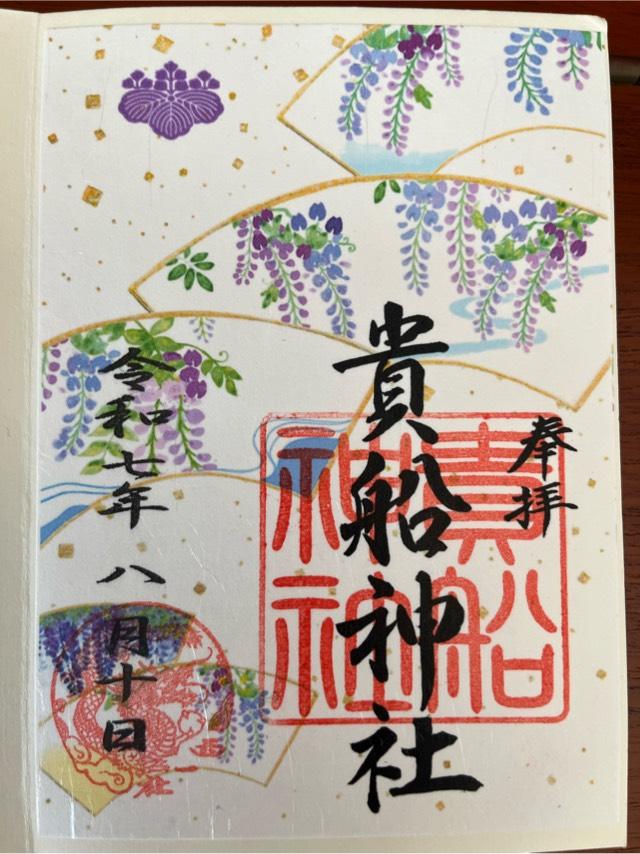 奉拝
貴船神社
貴船神社
令和七年八月十日